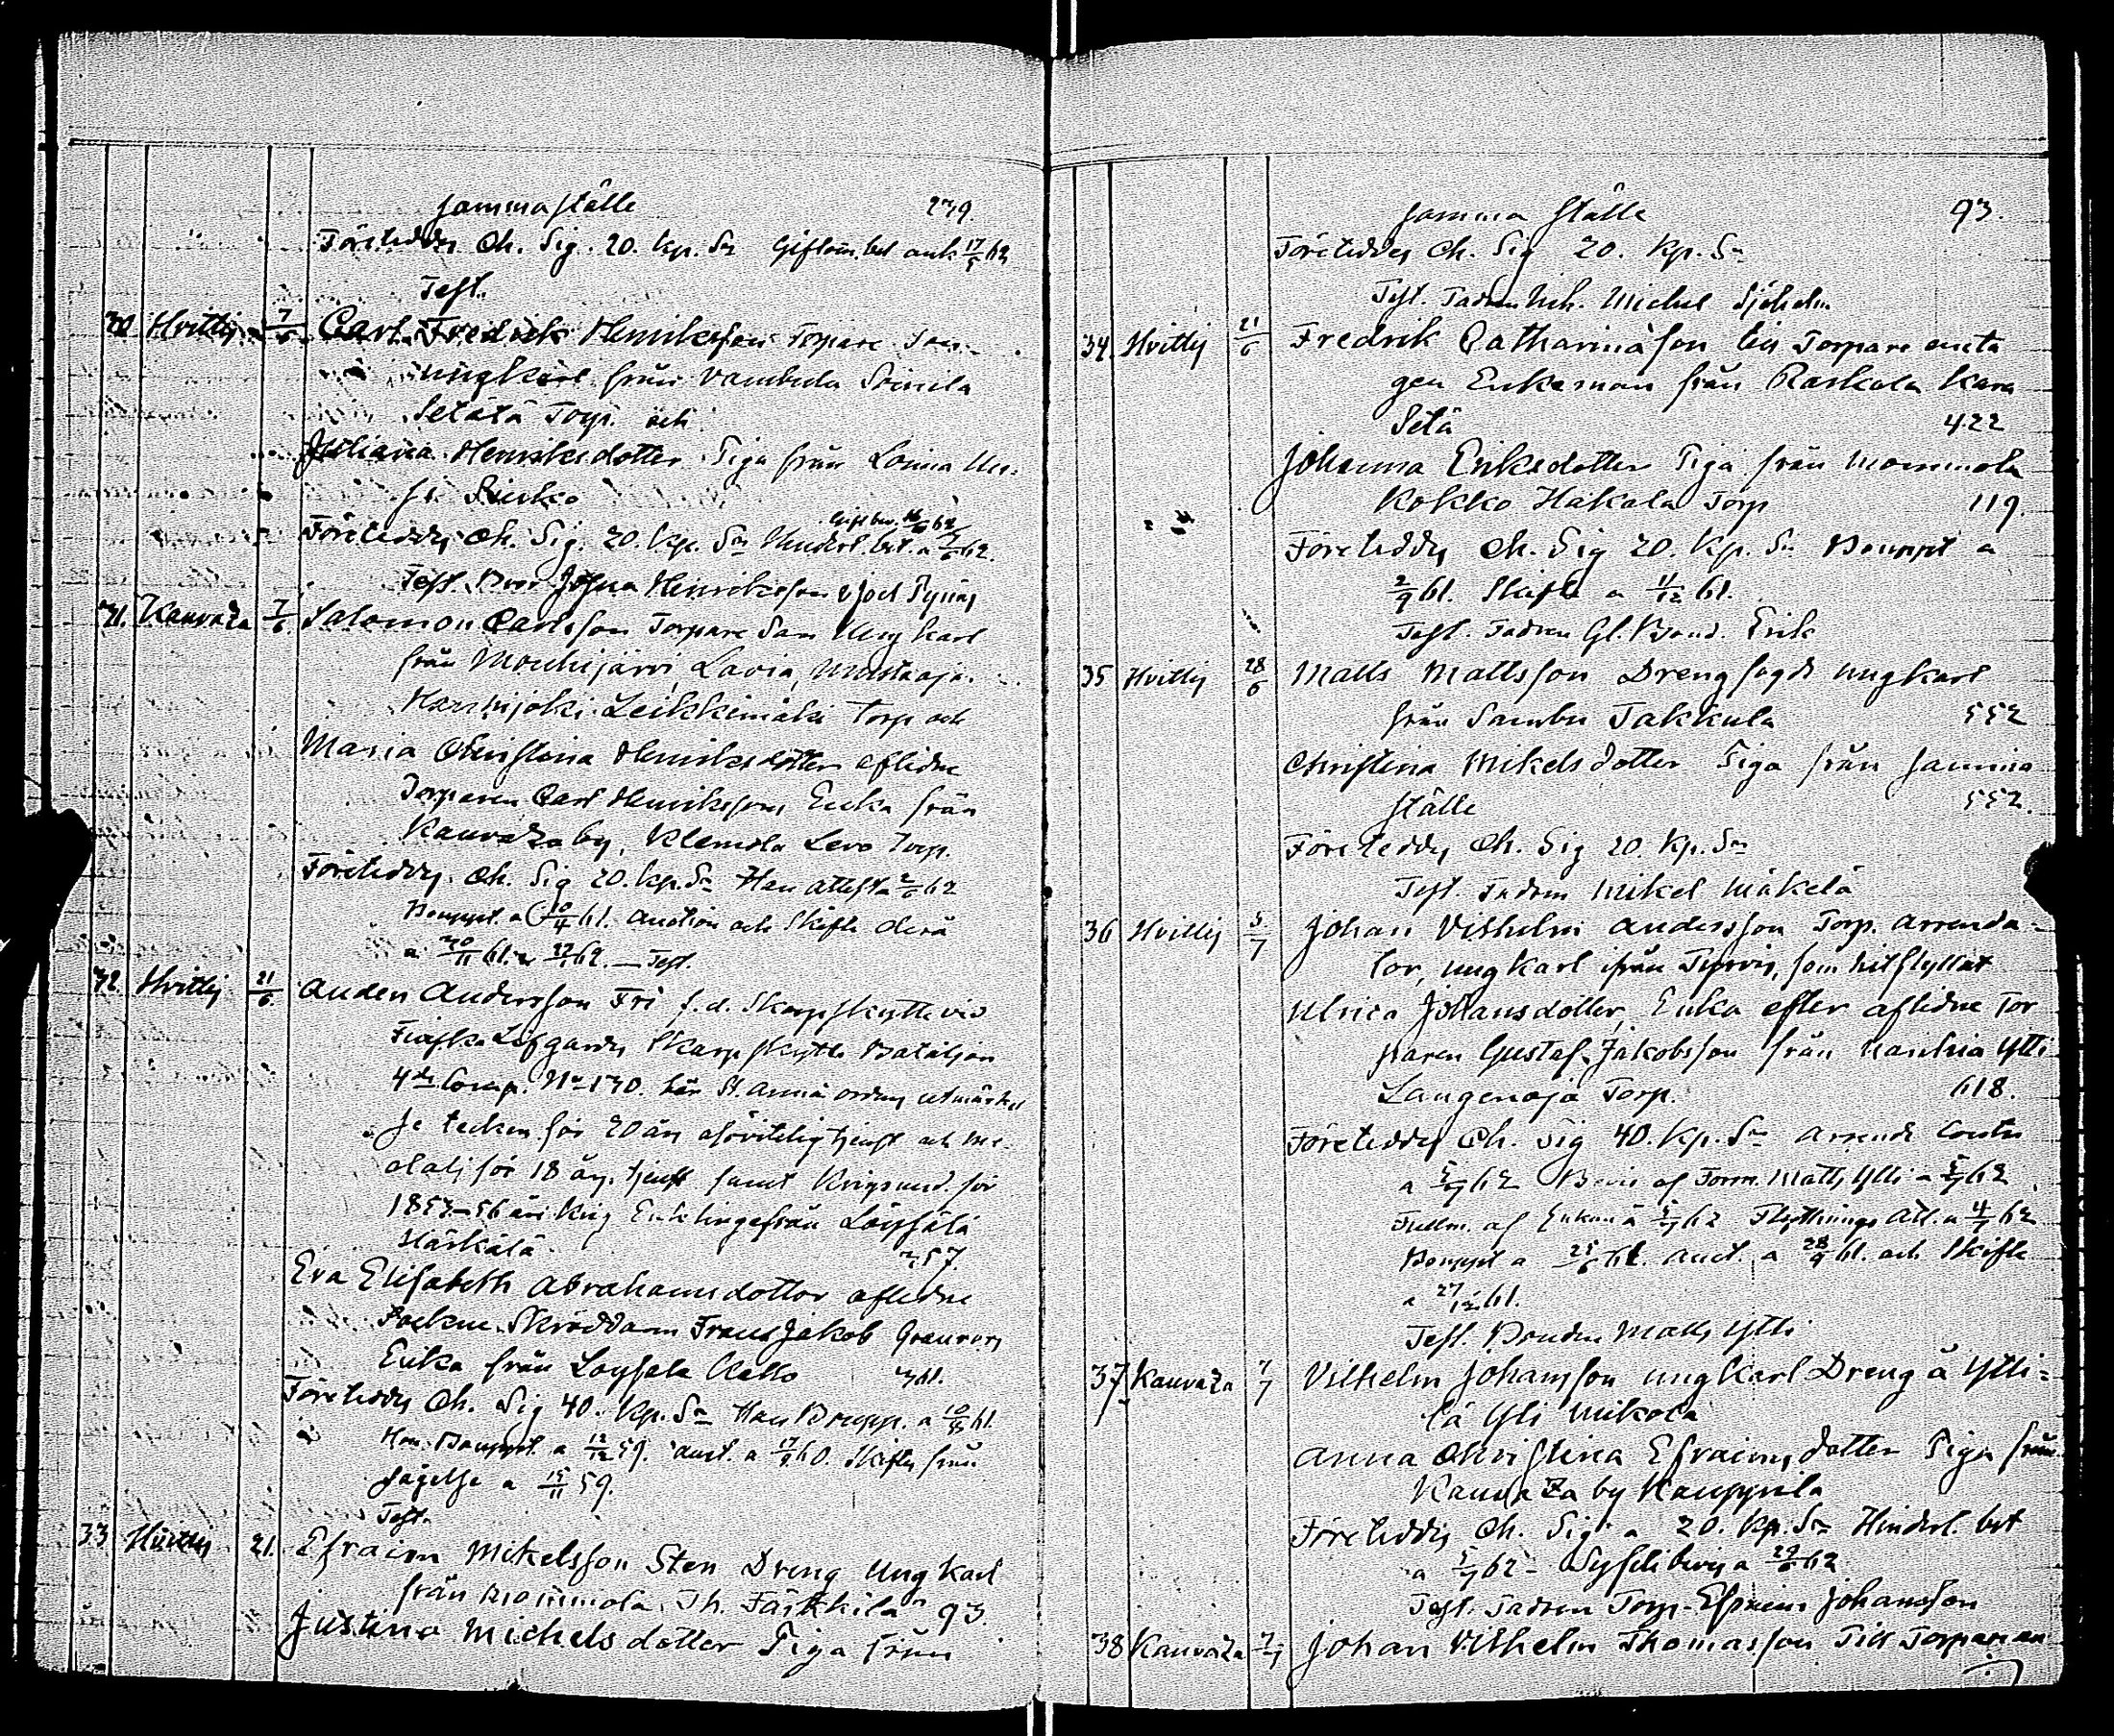 samma ställe 239.
Företeddes Ch. Sig. 20. kp. Sr Giftom. bet ank 17/5 62
Test.
30 Hvittis 7/6 Carl Fredrik Henriksson Torpare Son
ungkarl från Vambula Soinila
Setätä Torp. och
Juliana Henriksdotter Piga från Loima
Företeddes Ch. Sig. 20. kp. Sr Hinderl. bet. a 62.
Test. Bror Josua Henriksson
31. Kauvaza 7/6 Salomon Carlsson Torpare Son Ung karl
från Mouhijärvi, Lavia,
Leikkimäki Torp och
Maria Christina Henriksdotter aflidne
Torparen Carl Henrikssons Enka från
Kauvaza by, Klemola Levo Torp.
Företeddes Ch. Sig 20. kp. Sr Han attest a 2/6 62
Boupt. a 10/4 61. auction och Skifte
a 30/11 61. 62. — Test.
32. Hvittis 21/6 Anders Andersson Fri f.d. Skarpskytt vid
Finska Lifgardes Skarpskytte Bataljon
4de Comp. No 130. har St. Anna ordens utmärkel
se tecken för 20 års oförvitelig tjenst och me-
dalj för 18 års tjenst samt Krigsmed. för
1853–56 års krig Enklinge från Loysälä
Härkälä 357.
Eva Elisabeth Abrahamsdotter aflidne
Socken Skräddarn Frans Jakob
Enka från Loysälä 361.
Företeddes Ch. Sig 40. kp. Sr Hans Boupp. a 61.
Hon Boupt. a 12/12 59. auct. a 17/9 60. Skiftes från
sägelse a 15/11 59.
Test.
33 Hvittis 21. Efraim Mikelsson Sten Dreng Ung karl
från Mommola. Th. 93
Justina Michelsdotter Piga från
samma ställe 93.
Företeddes Ch. Sig 20. kp. Sr
Test. Fadren Michel Sjöholm
34. Hvittis 21/6 Fredrik Catharinason Torpare anta
gen Enkeman från Raskala Kara
Setä 422
Johanna Eriksdotter Piga från Mommola
Kokko Hakala Torp 119.
Företeddes Ch. Sig 20. Kp. Sr Bouppt a
2/9 61. Skifte a 11/12 61.
Test. Fadren Gl. Bond. Erik
35 Hvittis 28/6 Matts Mattsson Drengfogde ungkarl
från Sambu Takkula 552
Christina Mikelsdotter Piga från samma
ställe 552.
Företeddes Ch. Sig 20. Kp. Sr
Test. Fadren Mikel Mäkelä
36 Hvittis 5/7 Johan Vilhelm Andersson Torp. arrenda-
tor, ungkarl ifrån Tyrvis, som hitflyttat
Ulrica Johansdotter, Enka efter aflidne Tor
paren Gustaf Jakobsson från Nanhia Ylli
Langenoja Torp. 618.
Företeddes Ch. Sig 40. Kp. Sr Arrende Contr
a 5/7 62 Bevis af Form. Matts Ylli a 5/7 62
Fullm. af Enkan a 5/7 62 Flyttnings Att. a 4/7 62
Bouppt a 61. auct. a 28/9 61. och Skifte
a 27/12 61.
Test. Bonden Matts Ylli
37 Kauvaza 7/7 Vilhelm Johansson ungkarl Dreng å Ylli=
lä Yli Mikola
Anna Christina Efraimsdotter Piga från
Kauvaza by Kauppila
Företeddes Ch. Sig. a 20. Kp. Sr Hinderl. bet
a 5/7 62 – Sysslebevis a 29/6 62
Test. Fadren Torp. Efraim Johansson
38 Kauvaza 7/7 Johan Vilhelm Thomasson Till Torpare an